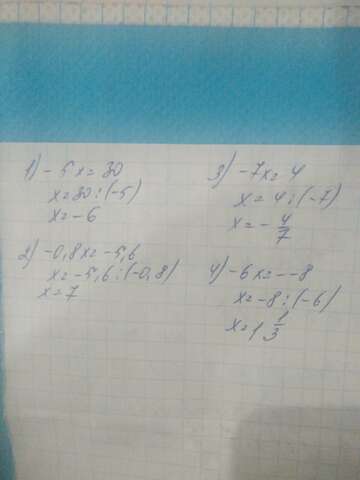 1) -5x=30
x=30:(-5)
x=-6
2) -0,8x=-5,6
x=-5,6:(-0,8)
x=7
3) -7x=4
x=4:(-7)
x=-4/7
4) -6x=--8
x=-8:(-6)
x=1 1/3